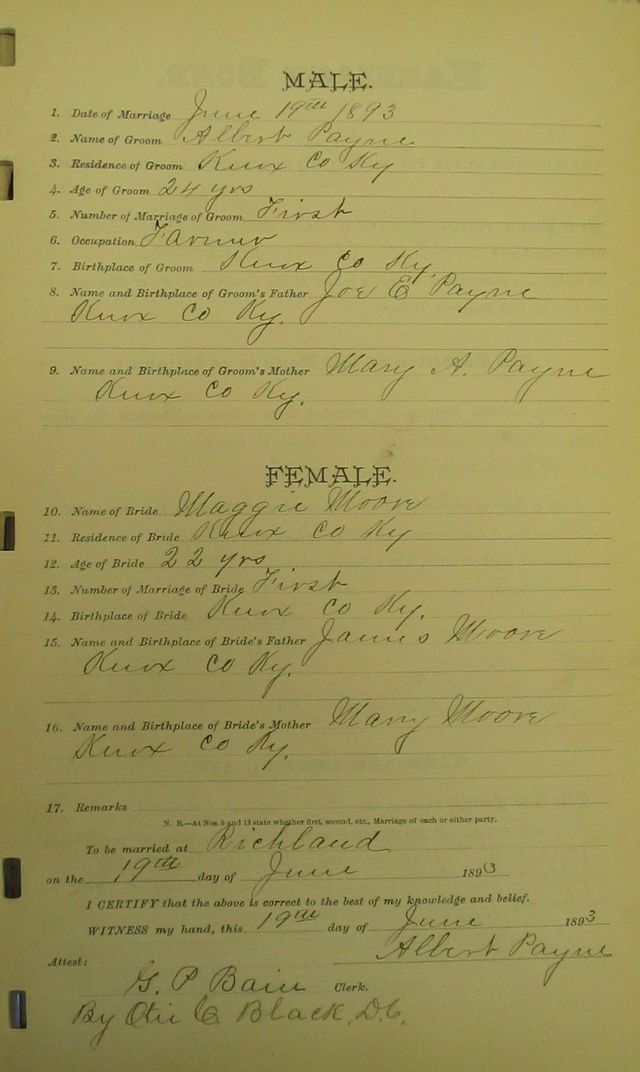 MALE.
1. Date of Marriage June 19th 1893
2. Name of Groom Albert Payne
3. Residence of Groom Knox Co Ky
4. Age of Groom 24 yrs
5. Number of Marriage of Groom First
6. Occupation Farmer
7. Birthplace of Groom Knox Co Ky.
8. Name and Birthplace of Groom's Father Joe E Payne
Knox Co Ky.
9. Name and Birthplace of Groom's Mother Mary A. Payne
Knox Co Ky.
FEMALE.
10. Name of Bride Maggie Moore
11. Residence of Bride Knox Co Ky
12. Age of Bride 22 yrs
13. Number of Marriage of Bride First
14. Birthplace of Bride Knox Co Ky.
15. Name and Birthplace of Bride's Father James Moore
Knox Co Ky.
16. Name and Birthplace of Bride's Mother Mary Moore
Knox Co Ky.
17. Remarks
N. B.—At Nos. 5 and 13 state whether first, second, etc., Marriage of each or either party.
To be married at Richland
on the 19th day of June 1893
I CERTIFY that the above is correct to the best of my knowledge and belief.
WITNESS my hand, this 19th day of June 1893
Albert Payne
Attest:
G. P Bain Clerk.
By C Black, D.C.